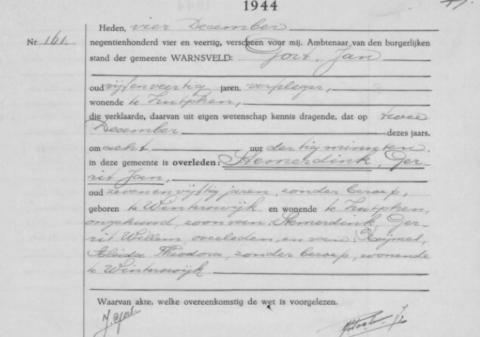 1944
Heden, vier December
Nr 161. negentienhonderd vier en veertig, verscheen voor mij, Ambtenaar van den burgerlijken
stand der gemeente WARNSVELD: Jan
oud vijfenveertig jaren, verpleger,
wonende te Zutphen,
die verklaarde, daarvan uit eigen wetenschap kennis dragende, dat op twee
December dezes jaars.
om acht uur dertig minuten
in deze gemeente is overleden: Hemerdink, Ger-
rit Jan,
oud zevenenvijftig jaren, zonder beroep,
geboren te Winterswijk en wonende te Zutphen,
ongehuwd, zoon van Hemerdink, Ger-
rit Willem, overleden, en van
Aleida Theodora, zonder beroep, wonende
te Winterswijk
Waarvan akte, welke overeenkomstig de wet is voorgelezen.